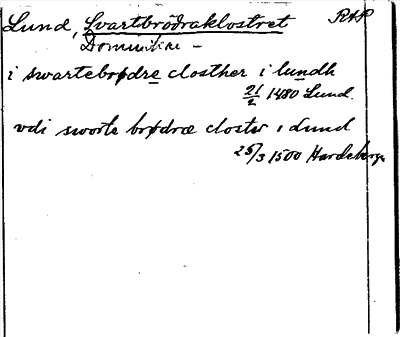 Lund, Svartbrödraklostret RAP
Dominikan-
i swartebrødre closther i lundh
21/2 1480 Lund.
vdi sworte brødræ closter i Lund
25/3 1500 Hardeberga